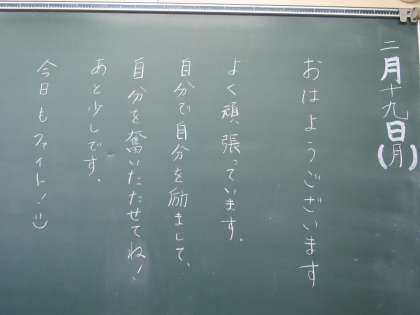 二月十九日(月)
おはようございます
よく頑張っています。
自分で自分を励まして、
自分を奮いたたせてね！
あと少しです。
今日もファイト！